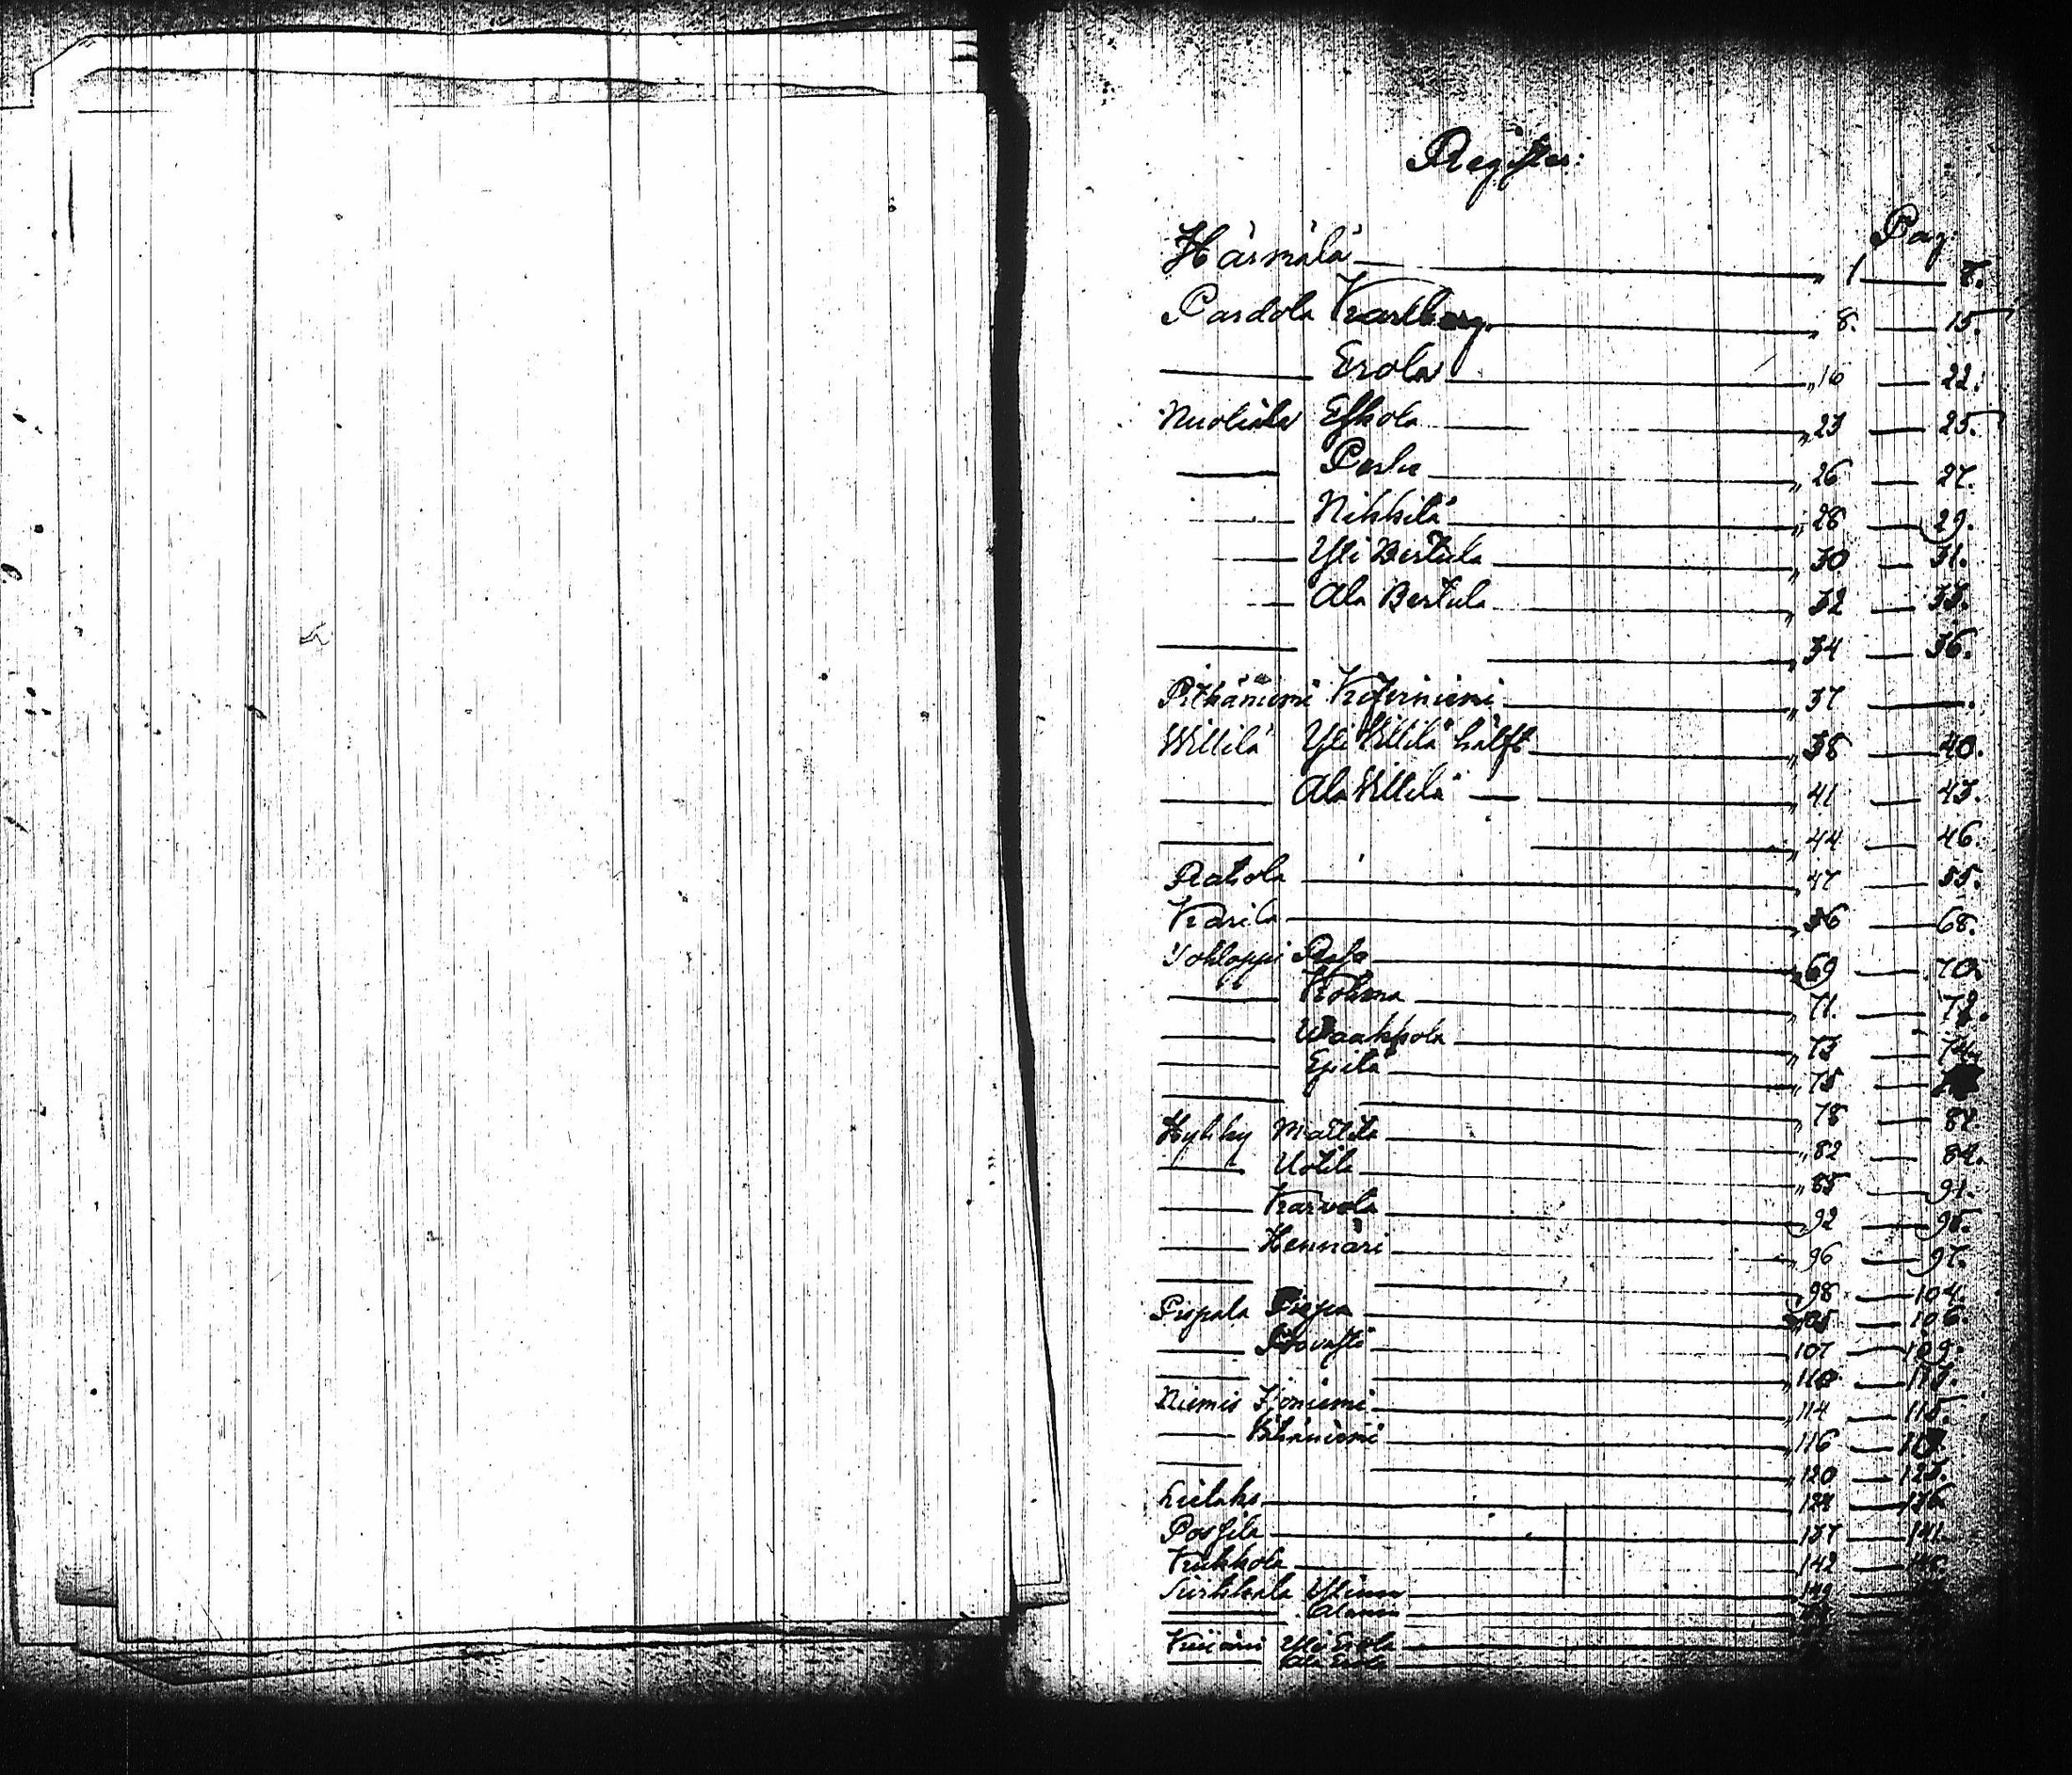 Register:
Pag:
Härmälä „ 1 — 7.
Pardola Karlberg. „ 8. — 15.
— Erola „ 16 — 22.
Nuoliala Eskola „ 23 — 25.
— Perlu „ 26 — 27.
— Nikkilä „ 28 — 29.
— Yli Bertula „ 30 — 31.
— Ala Bertula „ 32 — 33.
— „ 34 — 36.
Pitkäniemi „ 37 —.
Willilä Yli Willilä hälft „ 38 — 40.
— Ala Willilä — „ 41 — 43.
— „ 44 — 46.
Rahola „ 47 — 55.
Karila „ 56 — 68.
Tohloppi „ 69 — 70.
— Kohma „ 71. — 72.
— Waakkola „ 73 —
— Epilä „ 75 —
— „ 78 — 81.
Hyhky Mattila „ 82 — 84.
— Uotila „ 85 — 91.
— Karvola „ 92 — 95.
— Hennäri „ 96 — 97.
— „ 98 — 104.
Pispala Pispa „ 105 — 106.
— Provasti „ 107 — 109.
— „ 110 — 113.
Niemis „ 114 — 115.
— Pitkäniemi „ 116 —
— „ 120 — 123.
Lielaks 124 — 136
Possila 137 — 141.
Kukkola 142
Siukkala Ylinen
— Alanen
Yli Erola
— Ala Erola